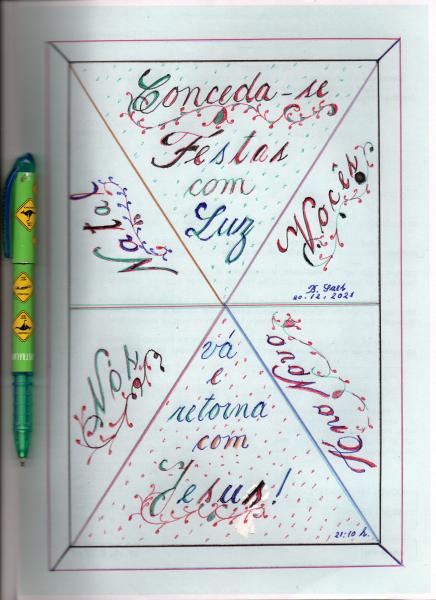 Conceda-se
Féstas
com
Luz
Natal
Vocês
20.12.2021
Nós
vá
e
retorna
com
Jesus!
Ano Novo
21:10 h.